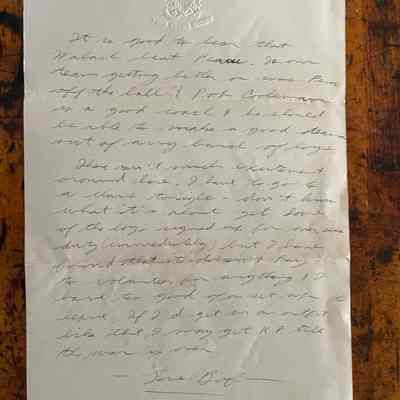 It is good to hear that
Wabash beat Is our
team getting better or was
off the ball? Pop
is a good coach & he should
be able to make a good team
out of any band of boys
There isn't much excitement
around here. I have to go to
a class tonight - don't know
what it's about yet. Some
of the boys signed up for over seas
duty (immediately) but I have
found that it doesn't pay
to volunteer for anything & I
have too good of a set up to
leave. If I'd get in an outfit
like that I may get K.P. till
the war is over
- Love Bob -